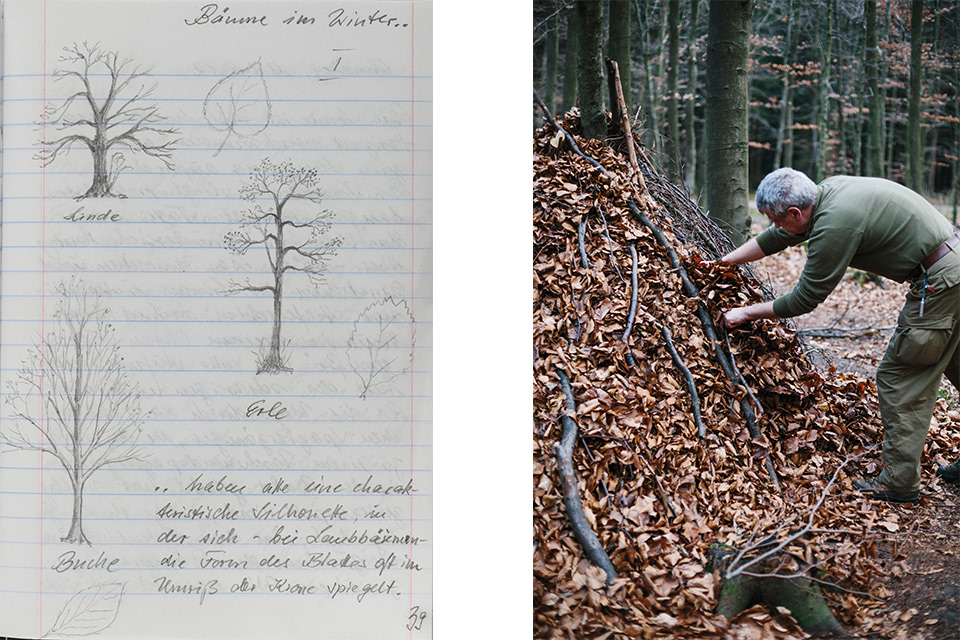 Bäume im Winter..
I
Linde
Erle
Buche
.. haben alle eine charak-
teristische Silhouette, in
der sich - bei Laubbäumen-
die Form des Blattes oft im
Umriß der Krone spiegelt.
39